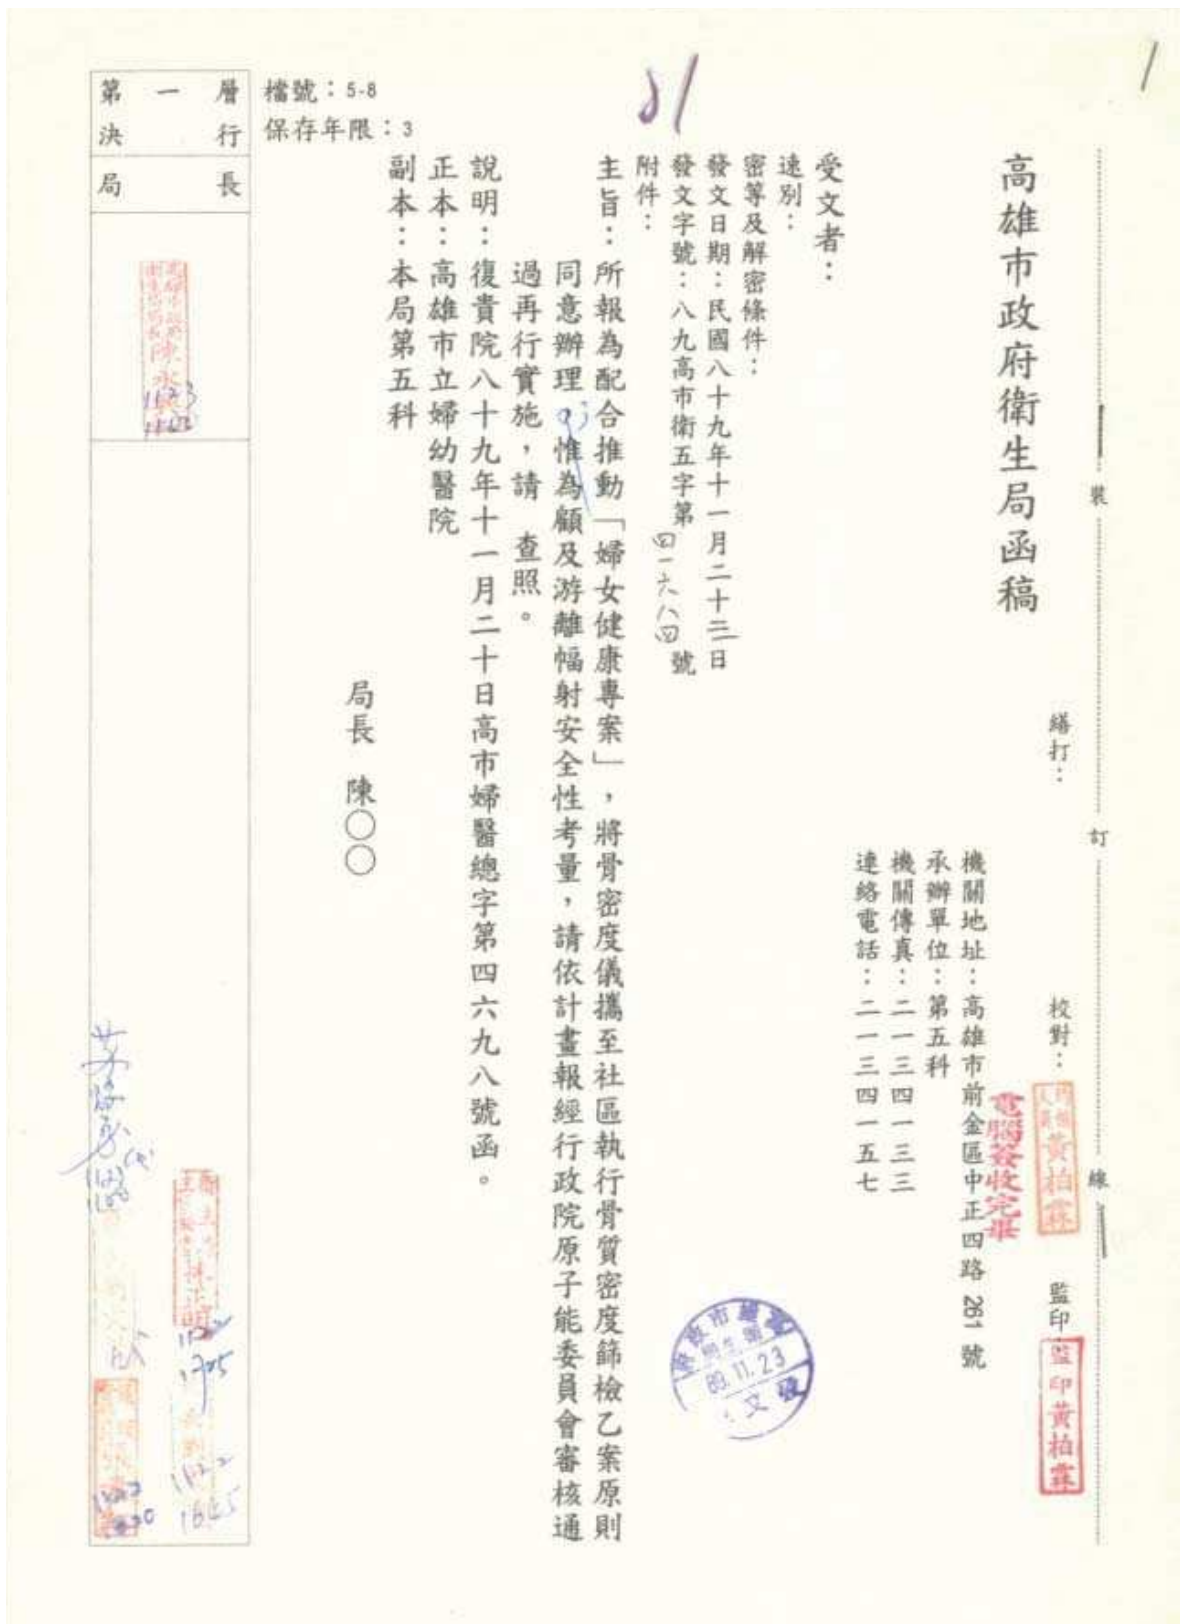 高雄市政府衛生局函稿
繕打：
校對：
監印
監印黃柏霖
黃柏霖
電腦簽收完畢
機關地址：高雄市前金區中正四路261號
承辦單位：第五科
機關傳真：二一三四一三三
連絡電話：二一三四一五七
受文者：
速別：
密等及解密條件：
發文日期：民國八十九年十一月二十三日
發文字號：八九高市衛五字第四一六八四號
附件：
主旨：所報為配合推動「婦女健康專案」，將骨密度儀攜至社區執行骨質密度篩檢乙案原則
同意辦理，惟為顧及游離幅射安全性考量，請依計畫報經行政院原子能委員會審核通
過再行實施，請　查照。
說明：復貴院八十九年十一月二十日高市婦醫總字第四六九八號函。
正本：高雄市立婦幼醫院
副本：本局第五科
局長　陳○○
檔號：5-8
保存年限：3
第一層
決行
局長
89.11.23
裝
訂
線